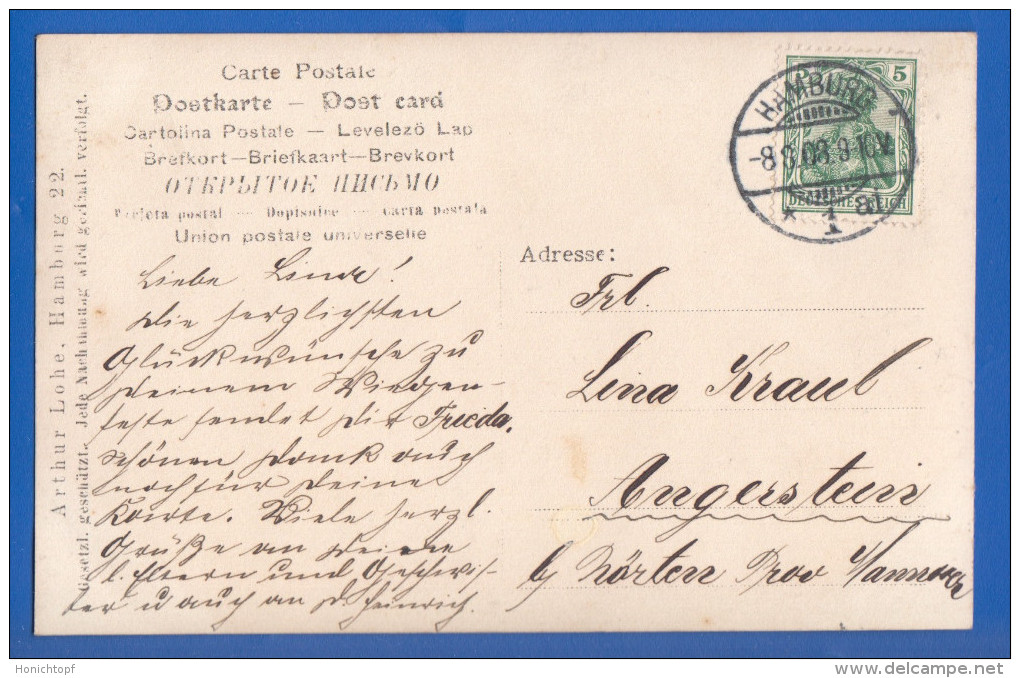 Carte Postale
Postkarte — Post card
Cartolina Postale — Levelező Lap
Brefkort—Briefkaart—Brevkort
ОТКРЫТОЕ ПИСЬМО
Tarjeta postal — Dopisnice — Carta postala
Union postale universelle
Arthur Lohe, Hamburg 22.
Gesetzl. geschützt. Jede Nachahmung wird gerichtl. verfolgt.
5
DEUTSCHES REICH
HAMBURG
-8.9.08.9-10V.
* 1 a
Liebe Lina!
Die herzlichsten
Glückwünsche zu
Deinem Wiegen-
feste sendet Dir Frieda.
Schönen Dank auch
noch für Deine
Karte. Viele herzl.
Grüße an Deine
l. Eltern und Geschwis-
ter u auch an Heinrich.
Adresse:
Frl.
Lina Kraul
Angerstein
b/ Nörten Prov Hannover
Honichtopf
delcampe.net